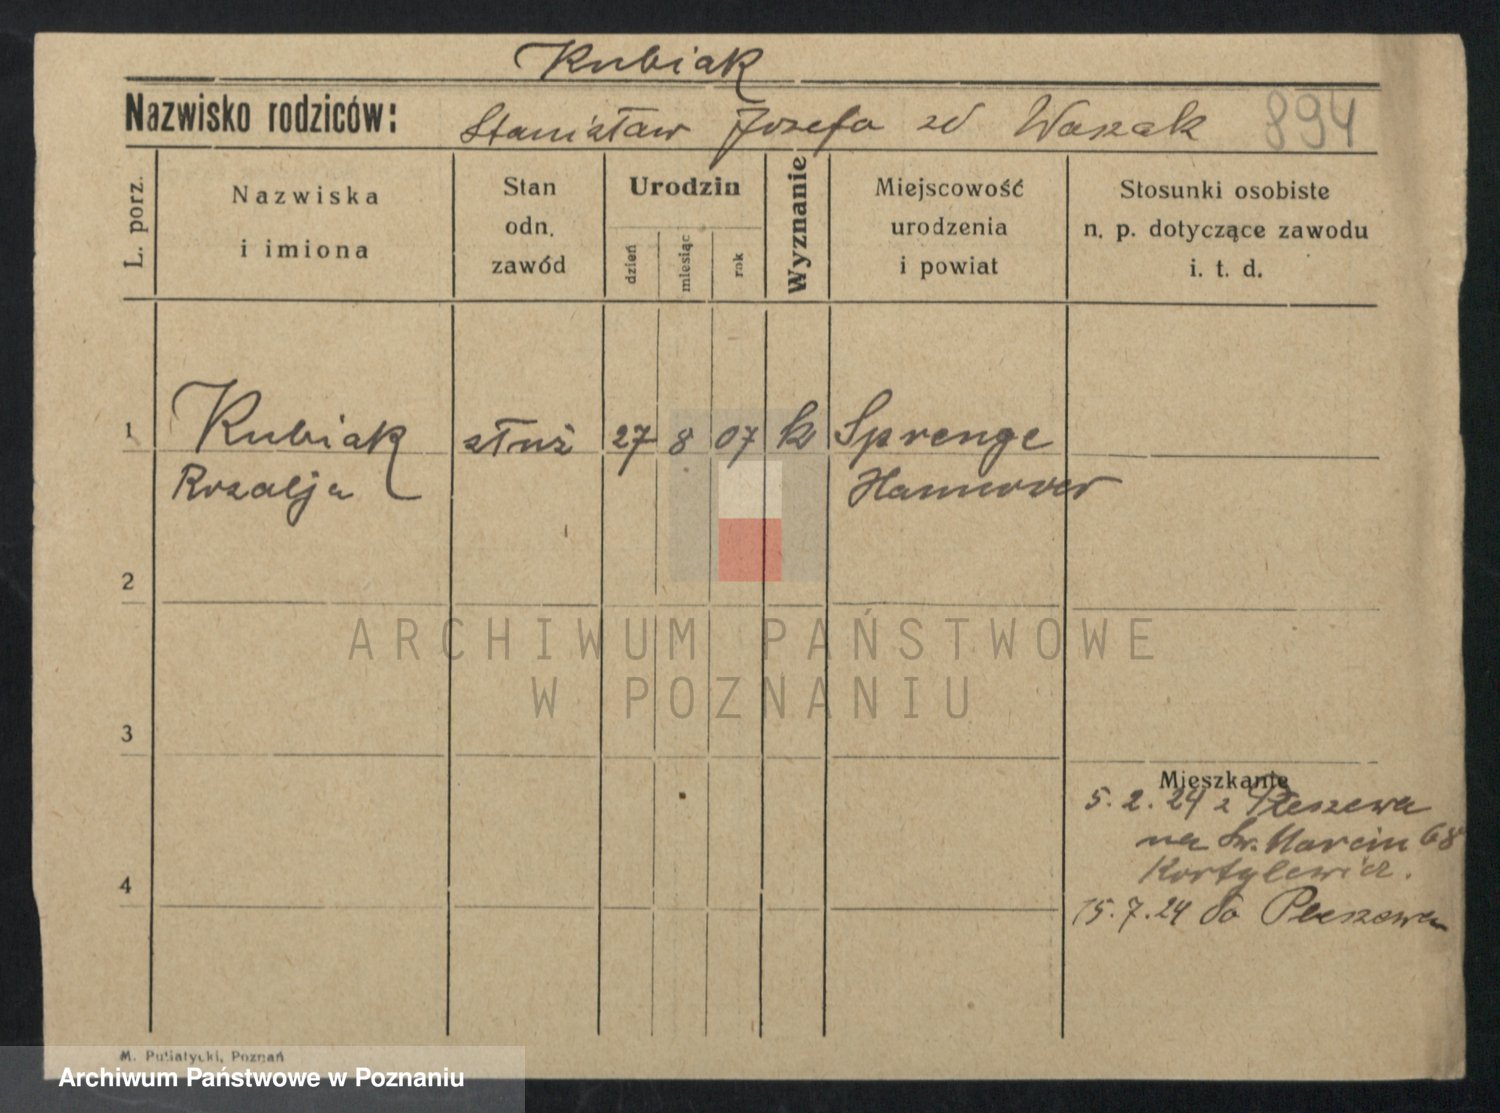 Kubiak
Nazwisko rodziców: Stanisław Józefa zd Waszak 894
L. porz.
Nazwiska
i imiona
Stan
odn.
zawód
Urodzin
dzień
miesiąc
rok
Wyznanie
Miejscowość
urodzenia
i powiat
Stosunki osobiste
n. p. dotyczące zawodu
i. t. d.
1 Kubiak służ 27 8 07 k Sprenge
Rozalja Hannover
2
ARCHIWUM PAŃSTWOWE
W POZNANIU
3
Mieszkanie
5. 2. 24 z Pleszewa
na Św. Marcin 68
Kortylewicz.
4
15. 7. 24 do Pleszewa
M. Putiatycki, Poznań
Archiwum Państwowe w Poznaniu